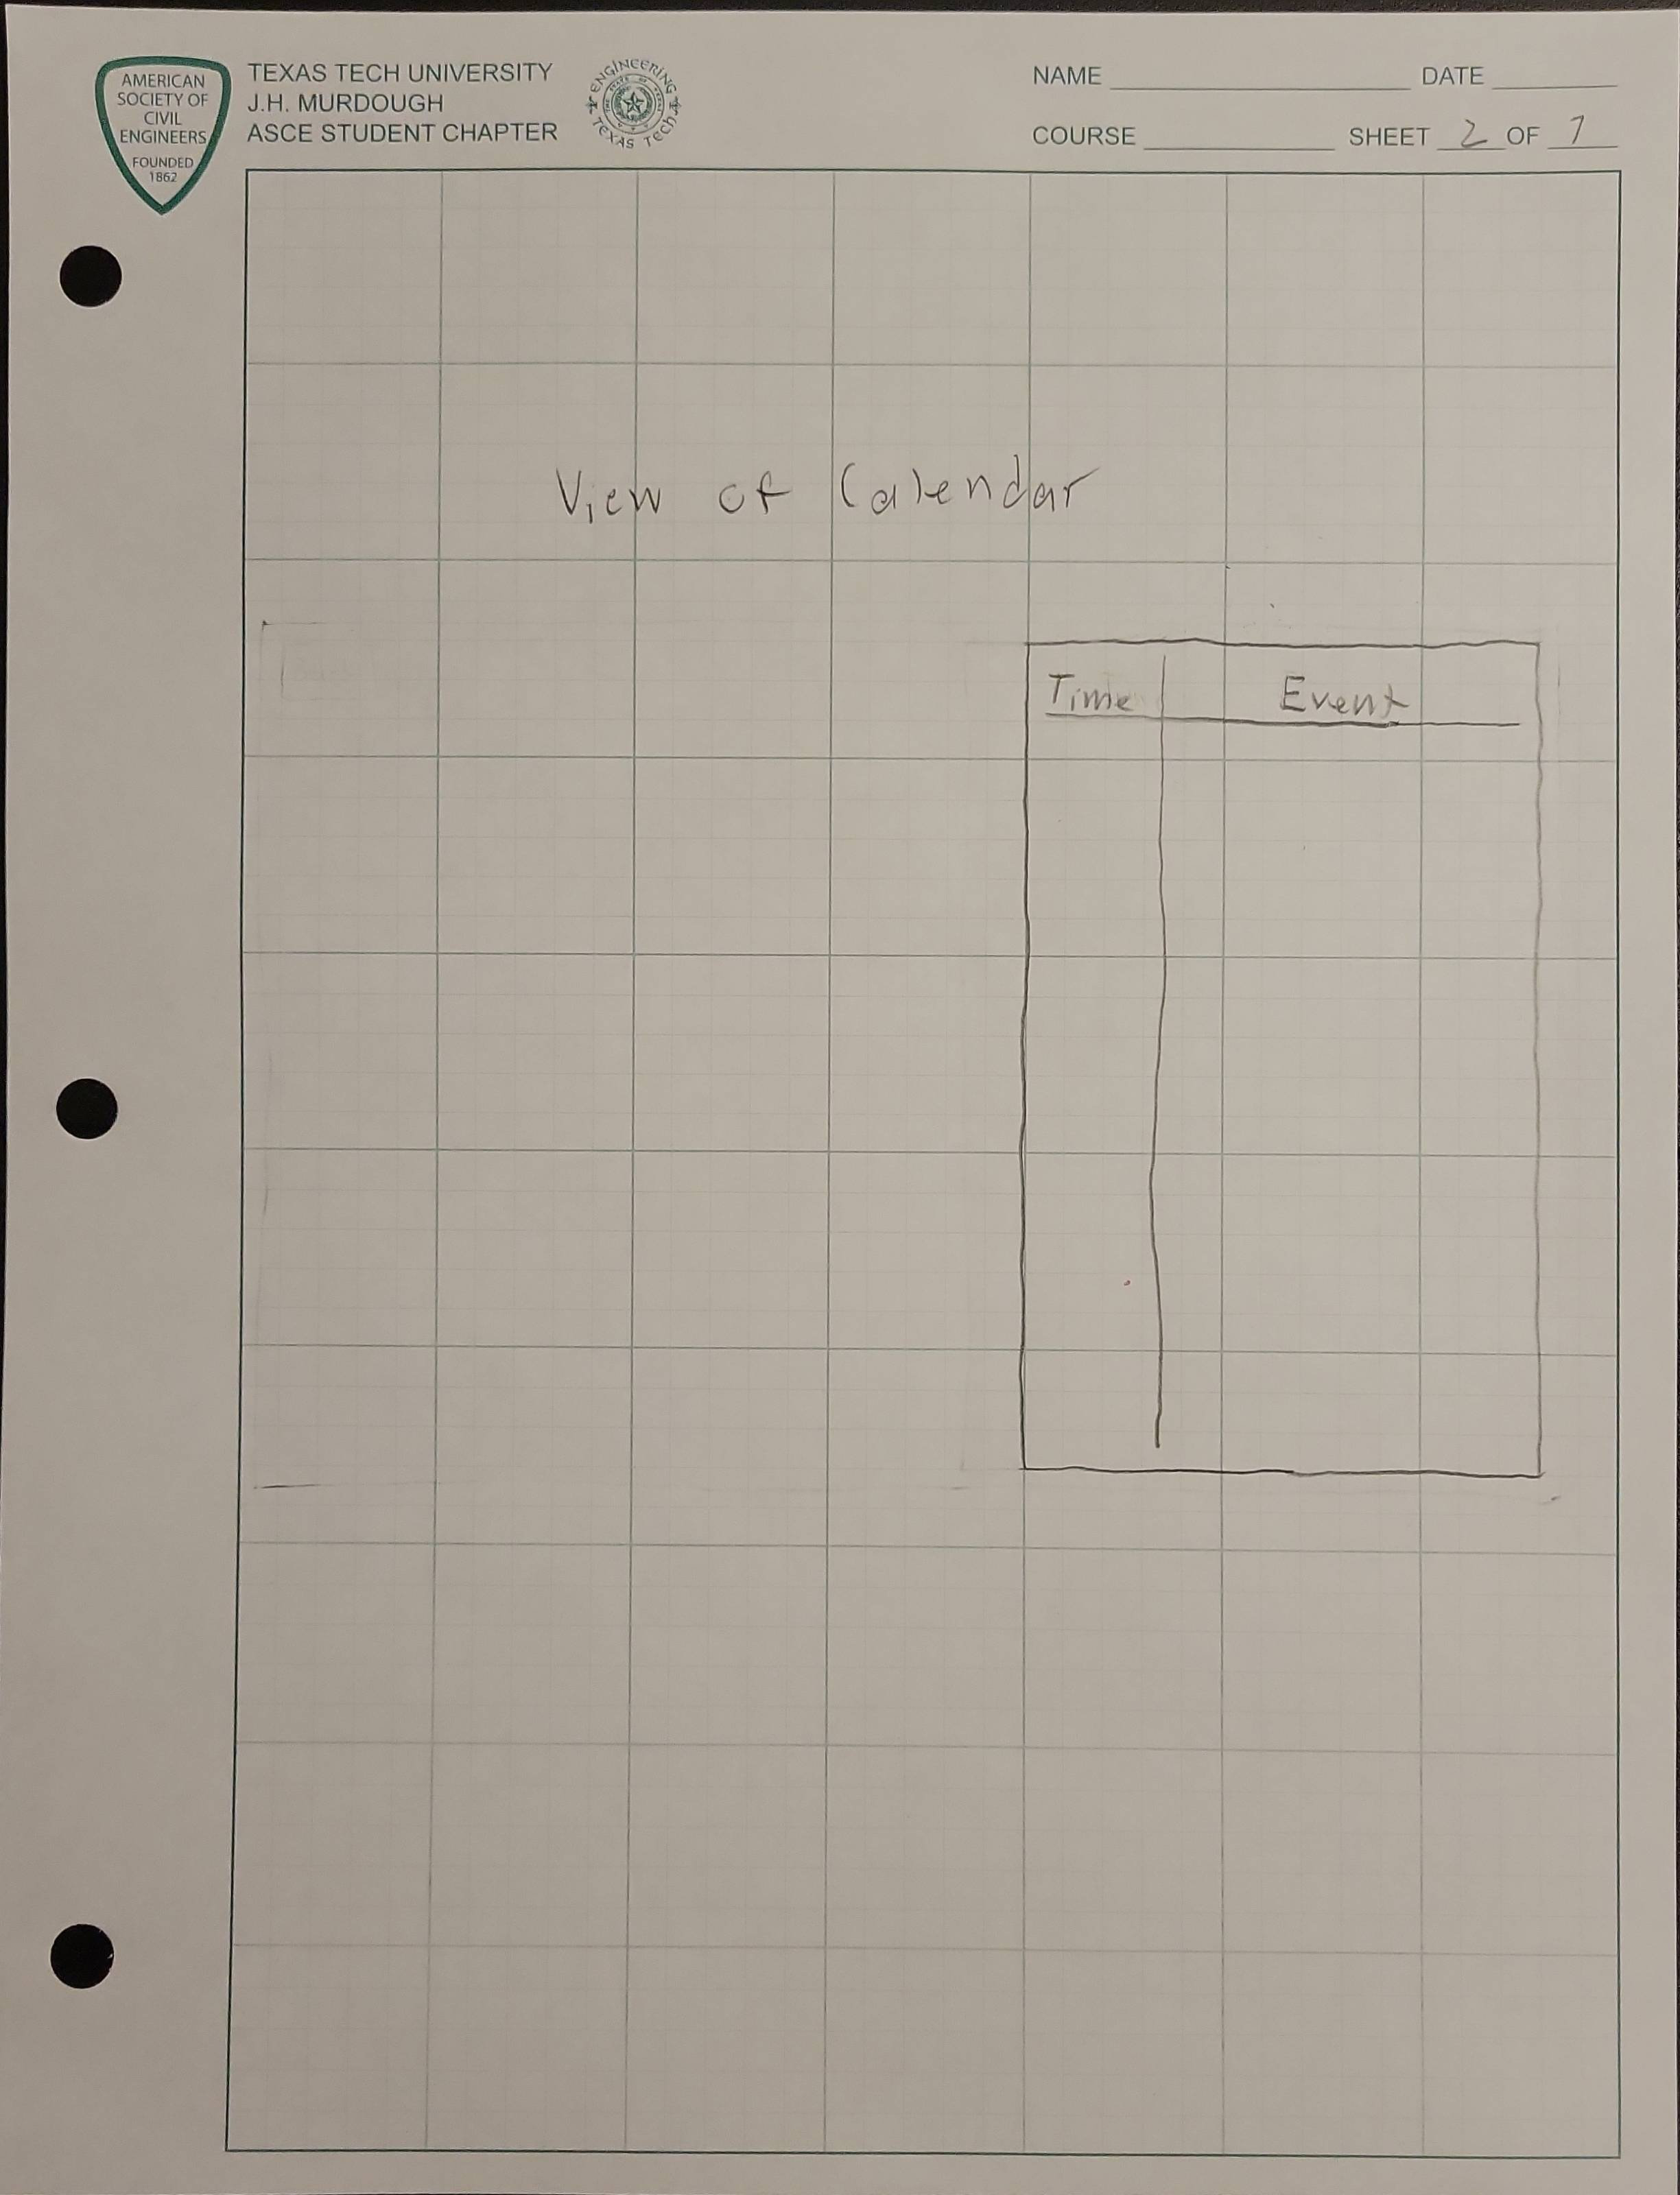 AMERICAN
SOCIETY OF
CIVIL
ENGINEERS
FOUNDED
1862
TEXAS TECH UNIVERSITY
J.H. MURDOUGH
ASCE STUDENT CHAPTER
ENGINEERING
TEXAS TECH
NAME DATE
COURSE SHEET 2 OF 7
View of Calendar
Time Event